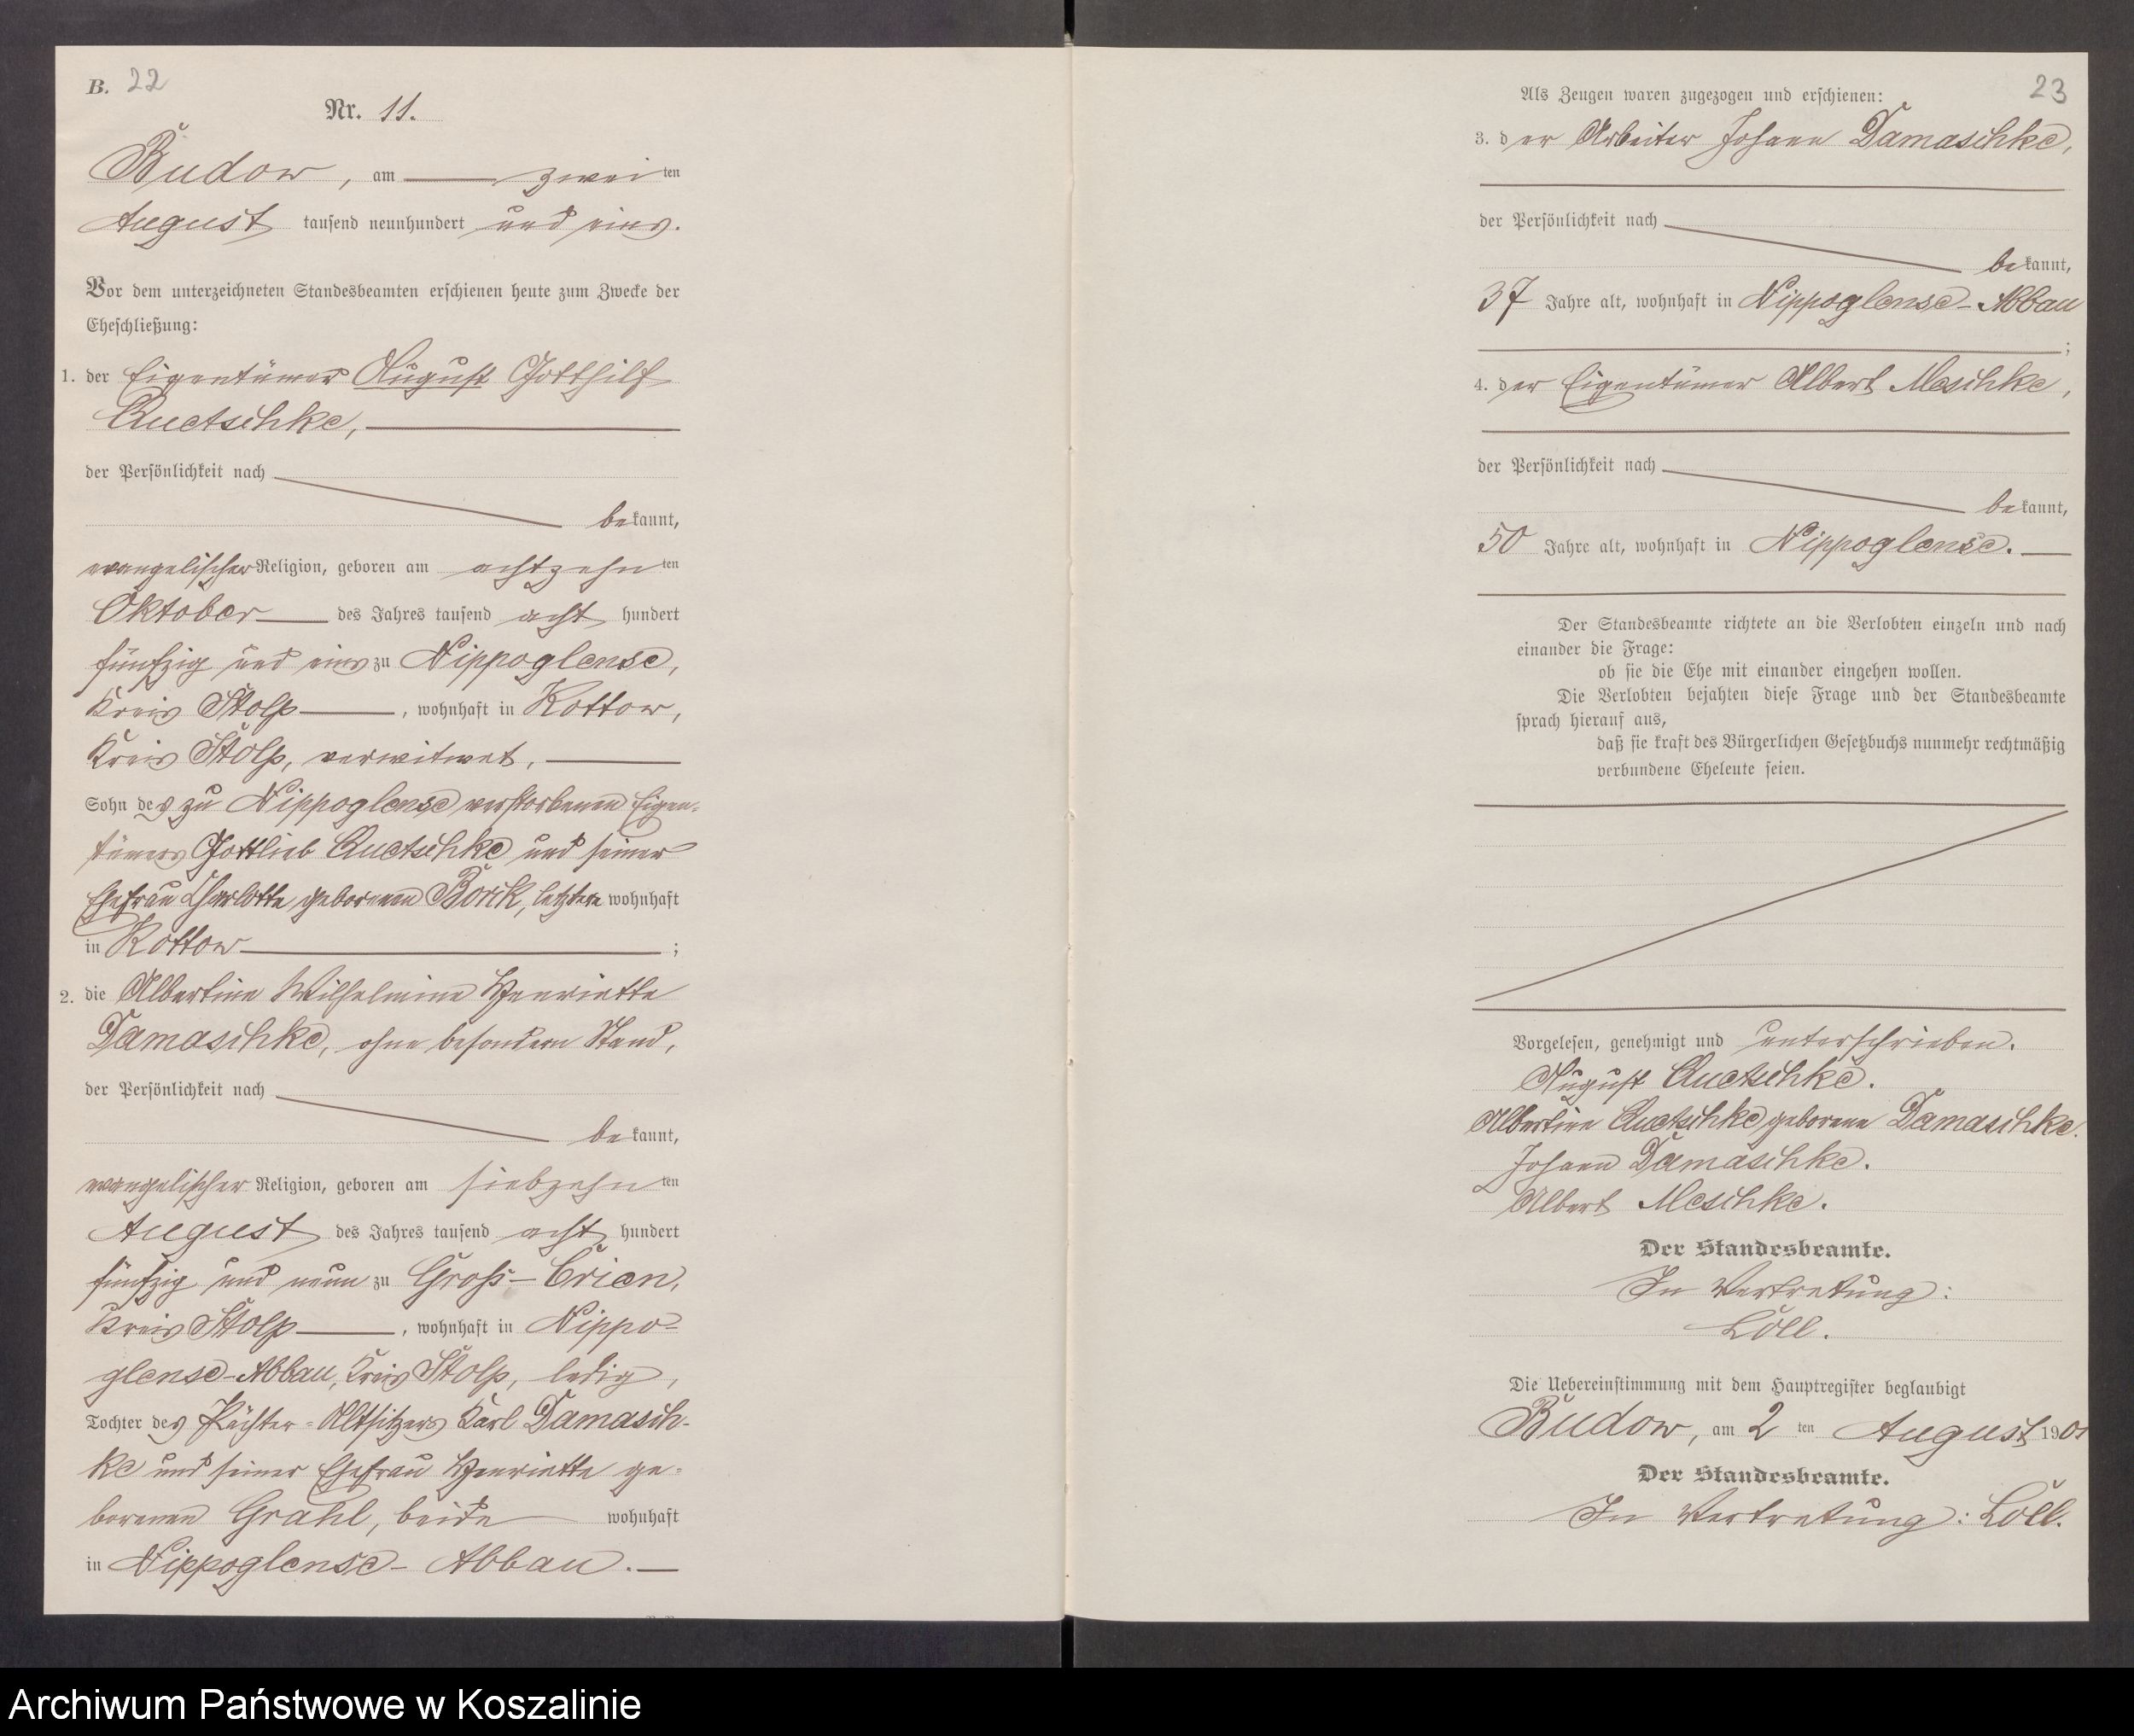 B. 22
Nr. 11.
Budow, am zweiten
August tausend neunhundert und eins.
Vor dem unterzeichneten Standesbeamten erschienen heute zum Zwecke der
Eheschließung:
1. der Eigentümer August Gotthilf
Quetschke,
der Persönlichkeit nach
bekannt,
evangelischer Religion, geboren am achtzehnten
Oktober des Jahres tausend acht hundert
fünfzig und eins zu Nippoglense,
Kreis Stolp, wohnhaft in Kottow,
Kreis Stolp, verwitwet,
Sohn des zu Nippoglense verstorbenen Eigen-
tümers Gottlieb Quetschke und seiner
Ehefrau Charlotte geborenen Borik, letztere wohnhaft
in Kottow;
2. die Albertine Wilhelmine Henriette
Damaschke, ohne besondern Stand,
der Persönlichkeit nach
bekannt,
evangelischer Religion, geboren am siebzehnten
August des Jahres tausend acht hundert
fünfzig und neun zu Groß-Crien,
Kreis Stolp, wohnhaft in Nippo-
glense-Abbau, Kreis Stolp, ledig,
Tochter des Pächter-Altsitzers Karl Damasch-
ke und seiner Ehefrau Henriette ge-
borenen Grahl, beide wohnhaft
in Nippoglense-Abbau.
23
Als Zeugen waren zugezogen und erschienen:
3. der Arbeiter Johann Damaschke,
der Persönlichkeit nach
bekannt,
37 Jahre alt, wohnhaft in Nippoglense-Abbau
;
4. der Eigentümer Albert Meschke,
der Persönlichkeit nach
bekannt,
50 Jahre alt, wohnhaft in Nippoglense.
Der Standesbeamte richtete an die Verlobten einzeln und nach
einander die Frage:
ob sie die Ehe mit einander eingehen wollen.
Die Verlobten bejahten diese Frage und der Standesbeamte
sprach hierauf aus,
daß sie kraft des Bürgerlichen Gesetzbuchs nunmehr rechtmäßig
verbundene Eheleute seien.
Vorgelesen, genehmigt und unterschrieben.
August Quetschke.
Albertine Quetschke geborene Damaschke.
Johann Damaschke.
Albert Meschke.
Der Standesbeamte.
In Vertretung:
Löll.
Die Uebereinstimmung mit dem Hauptregister beglaubigt
Budow, am 2 ten August 1901
Der Standesbeamte.
In Vertretung: Löll.
Archiwum Państwowe w Koszalinie